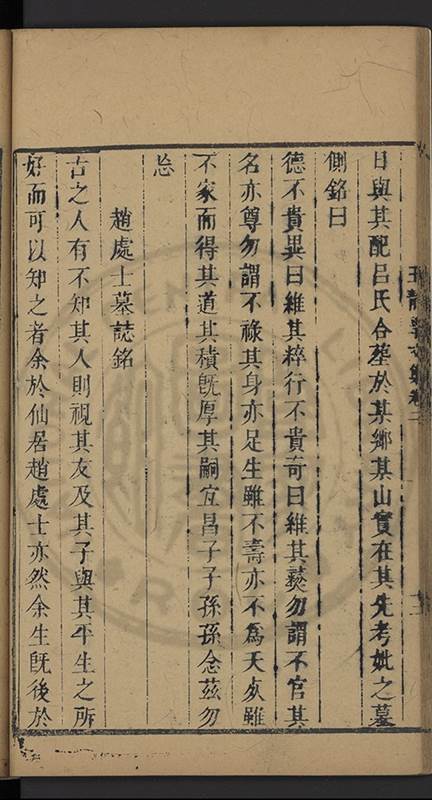 日與其配呂氏合葬於某鄉其山實在其先考妣之墓
側銘曰
德不貴異曰維其粹行不貴奇曰維其懿勿謂不官其
名亦尊勿謂不祿其身亦足生雖不壽亦不為夭處雖
不家而得其道其積旣厚其嗣宜昌子子孫孫念茲勿
忘
趙處士墓誌銘
古之人有不知其人則視其友及其子與其平生之所
好而可以知之者余於仙居趙處士亦然余生旣後於